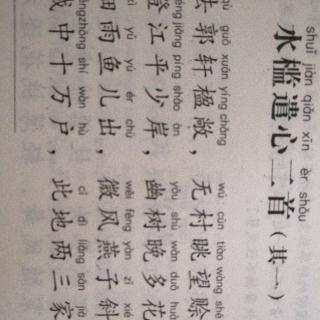 shuǐ jiàn qiǎn xīn èr shǒu
水槛遣心二首（其一）
guō xuān yíng chǎng wú cūn tiào wàng shē
去郭轩楹敞，无村眺望赊
jiāng píng shǎo àn yōu shù wǎn duō huā
澄江平少岸，幽树晚多花
yǔ yú ér chū wēi fēng yàn zǐ xié
细雨鱼儿出，微风燕子斜
zhōng shí wàn hù cǐ dì liǎng sān jiā
城中十万户，此地两三家